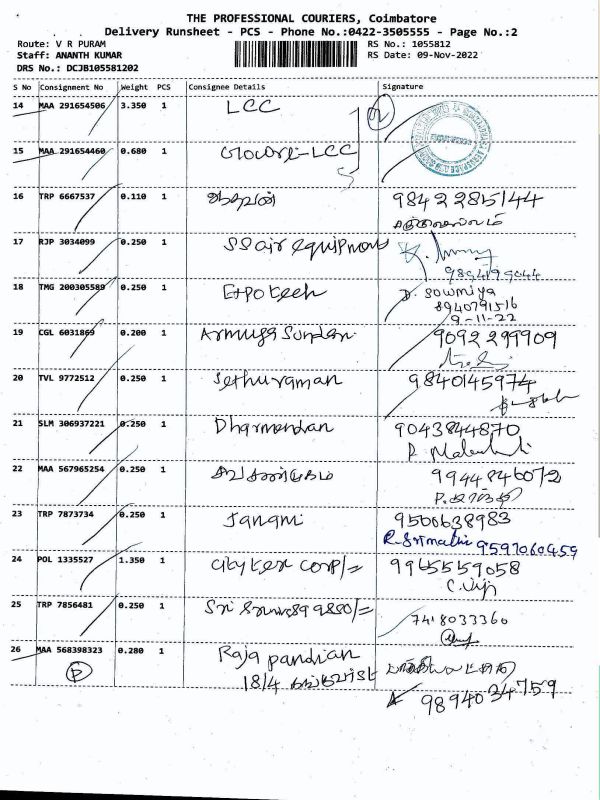 THE PROFESSIONAL COURIERS, Coimbatore
Delivery Runsheet - PCS - Phone No.:0422-3505555 - Page No.:2
Route: V R PURAM
Staff: ANANTH KUMAR
DRS No.: DCJB105581202
RS No.: 1055812
RS Date: 09-Nov-2022
S No Consignment No Weight PCS Consignee Details Signature
14 MAA 291654506 3.350 1 LCC
15 MAA 291654460 0.680 1 LCC
16 TRP 6667537 0.110 1 9842285144
17 RJP 3034099 0.250 1 SS air equipment
9894199044
18 TMG 200305589 0.250 1 Expo tech D. Sowmiya
8940791516
9-11-22
19 CGL 6031869 0.200 1 Armuga Sundar 9092299909
20 TVL 9772512 0.250 1 Sethuraman 9840145974
21 SLM 306937221 0.250 1 Dharmendran 9043844870
22 MAA 567965254 0.250 1 9944846072
23 TRP 7873734 0.250 1 Janani 9500638983
R. Srimathi 9597060459
24 POL 1335527 1.350 1 corp/= 9965559058
C. Viji
25 TRP 7856481 0.250 1 Sri 7418033360
26 MAA 568398323 0.280 1 Raja pandian
P 18/4
9894034759